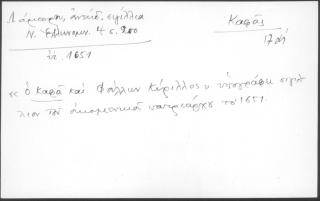 Λάμπρου, ἀνέκδ. σιγίλλια
Ν. Ἑλληνομν. 4 σ. 200
Καφᾶς
ἔτ. 1651
17 αἰ
«ὁ Καφᾶ καὶ Φούλλων Κύριλλος» ὑπογράφει σιγίλ
λιον τοῦ οἰκουμενικοῦ πατριάρχου τὸ 1651.